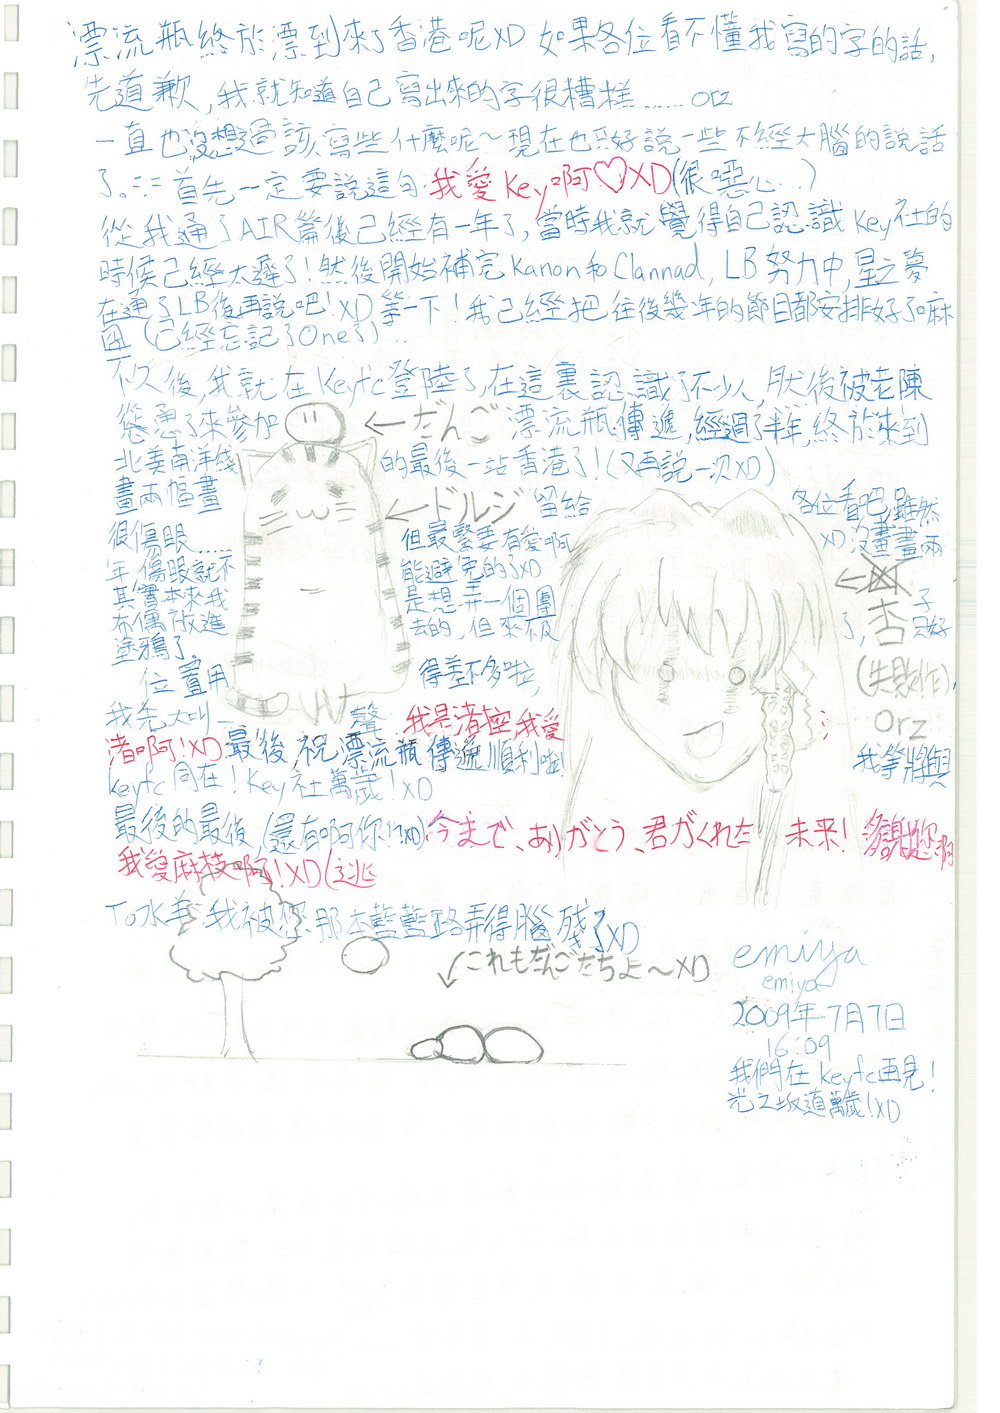 漂流瓶終於漂到來了香港呢XD 如果各位看不懂我寫的字的話,
先道歉,我就知道自己寫出來的字很糟糕......orz
一直也沒想過該寫些什麼呢~現在也只好說一些不經大腦的說話
了。=.=首先一定要說這句:我愛Key啊♡XD(很噁心...)
從我通了AIR篇後已經有一年了,當時我就覺得自己認識Key社的
時候已經太遲了!然後開始補完Kanon和Clannad, LB努力中,星之夢
在通了LB後再說吧!XD 等一下!我已經把往後幾年的節目都安排好了嘛
(已經忘記了One了)...
不久後,我就在Keyfc登陸了,在這裏認識了不少人,然後被老陳
慫恿了來參加
←だんご
漂流瓶傳遞,經過了半年,終於來到
北美南洋綫
的最後一站香港了!(又再說一次XD)
畫兩幅畫
←ドルジ
留給
各位看吧,雖然
很傷眼......
但最緊要有愛啊
XD沒畫畫兩
年 傷眼就不
能避免的了XD
←杏
其實本來我
是想弄一個團
子
布偶放進
去的,但來不及
了,
只好
塗鴉了。
(失敗作)
orz
位置用
得差不多啦,
我先大叫一
聲
我是渚控,我愛
渚啊!XD
最後,祝漂流瓶傳遞順利啦!
我等將與
keyfc同在!Key社萬歲!XD
最後的最後,(還有啊你!?XD)今まで、ありがとう、君がくれた 未来!
我愛麻枝啊!XD(逃
我被您那本藍藍路弄得腦殘了XD
↙これもだんごたちよ~XD
emiya
emiya
2009年7月7日
16:09
我們在keyfc再見!
光之坂道萬歲!XD